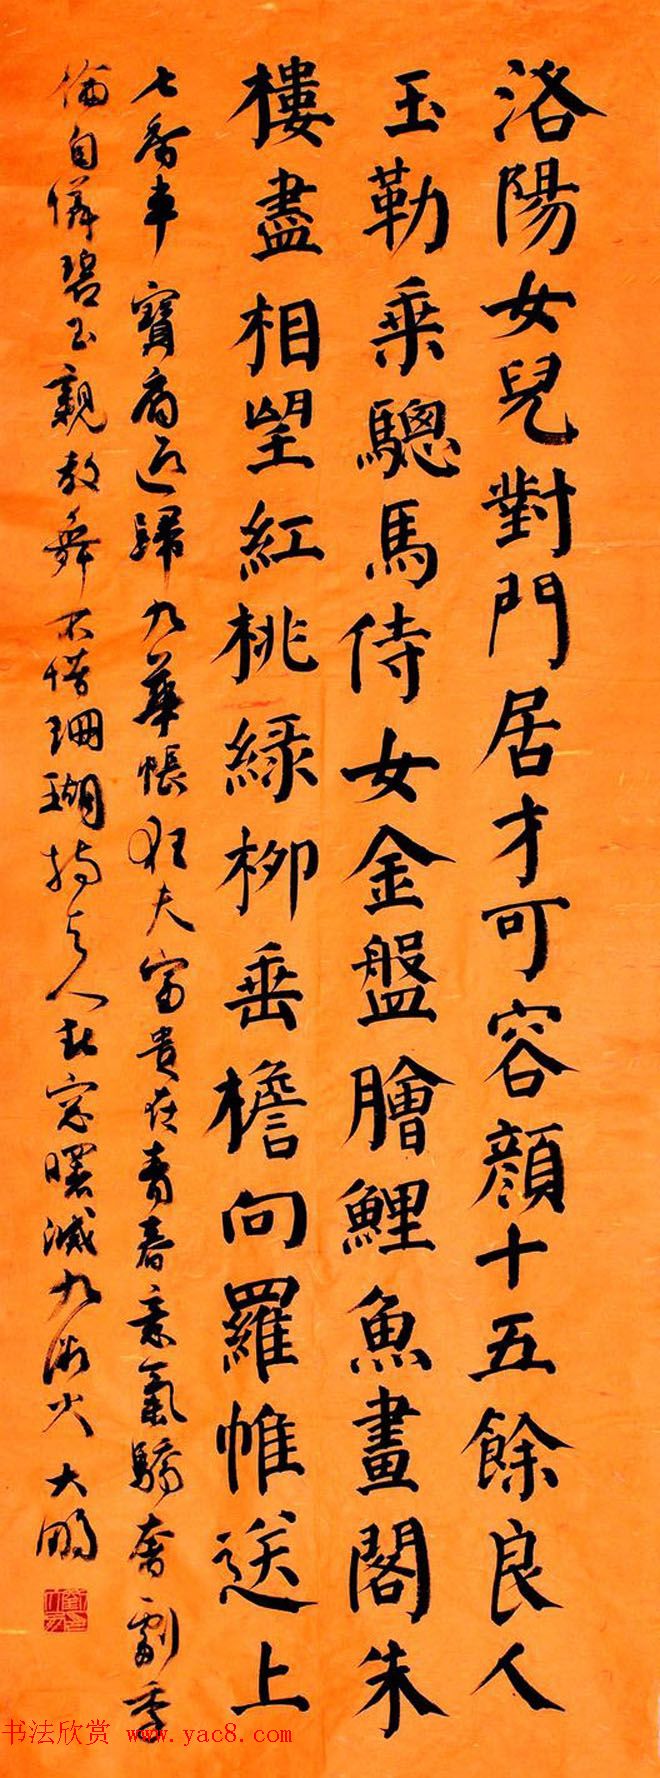 洛陽女兒對門居才可容顏十五餘良人
玉勒乘驄馬侍女金盤膾鯉魚畫閣朱
樓盡相望紅桃緑柳垂檐向羅帷送上
七香車寶扇迎歸九華帳狂夫富貴在青春意氣驕奢劇季
倫自憐碧玉親教舞不惜珊瑚持與人春窓曙滅九微火 大鵬
书法欣赏 www.yac8.com